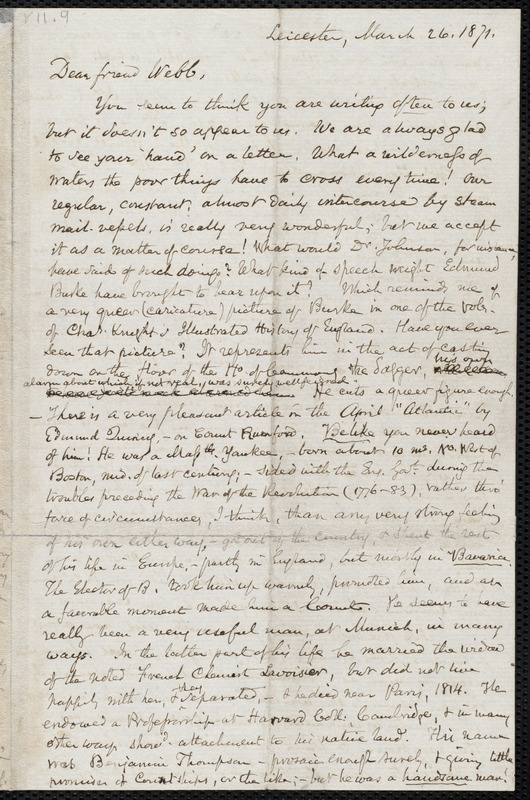 VII.9
Leicester, March 26. 1871.
Dear friend Webb,
You seem to think you are writing often to us;
but it doesn't so appear to us. We are always glad
to see your 'hand' on a letter. What a wilderness of
waters the poor things have to cross every time! Our
regular, constant, almost daily intercourse by steam
mail-vessels, is really very wonderful; but we accept
it as a matter of course! What would Dr. Johnson, for instance,
have said of such doings? What kind of speech might Edmund
Burke have brought to bear upon it? Which reminds me of
a very queer (caricature) picture of Burke in one of the vols.
of Chas. Knight's Illustrated History of England. Have you ever
seen that picture? It represents him in the act of casting
down on the floor of the Ho. of Commons the dagger, his own
alarm about which, if not real, was surely well feigned.
He cuts a queer figure enough.
— There is a very pleasant article in the April "Atlantic" by
Edmund Quincy, - on Count Rumford. Belike you never heard
of him! He was a Masstts. Yankee, - born about 10 ms. No. West of
Boston, mid. of last century, - sided with the Eng. Govt. during the
troubles preceding the War of the Revolution (1776-83), rather thro'
force of circumstances, I think, than any very strong feeling
of his own either way, - got out of the country, & spent the rest
of his life in Europe, - partly in England, but mostly in Bavaria.
The Elector of B. took him up warmly, promoted him, and at
a favorable moment made him a Count. He seems to have
really been a very useful man, at Munich, in many
ways. In the latter part of his life he married the widow
of the noted French Chemist Lavoisier, but did not live
happily with her, & they separated, - & he died near Paris, 1814. He
endowed a Professorship at Harvard Coll. Cambridge, & in many
other ways showd. attachment to his native land. His name
was Benjamin Thompson - prosaic enough surely, & giving little
promise of Countships, or the like; - but he was a handsome man!